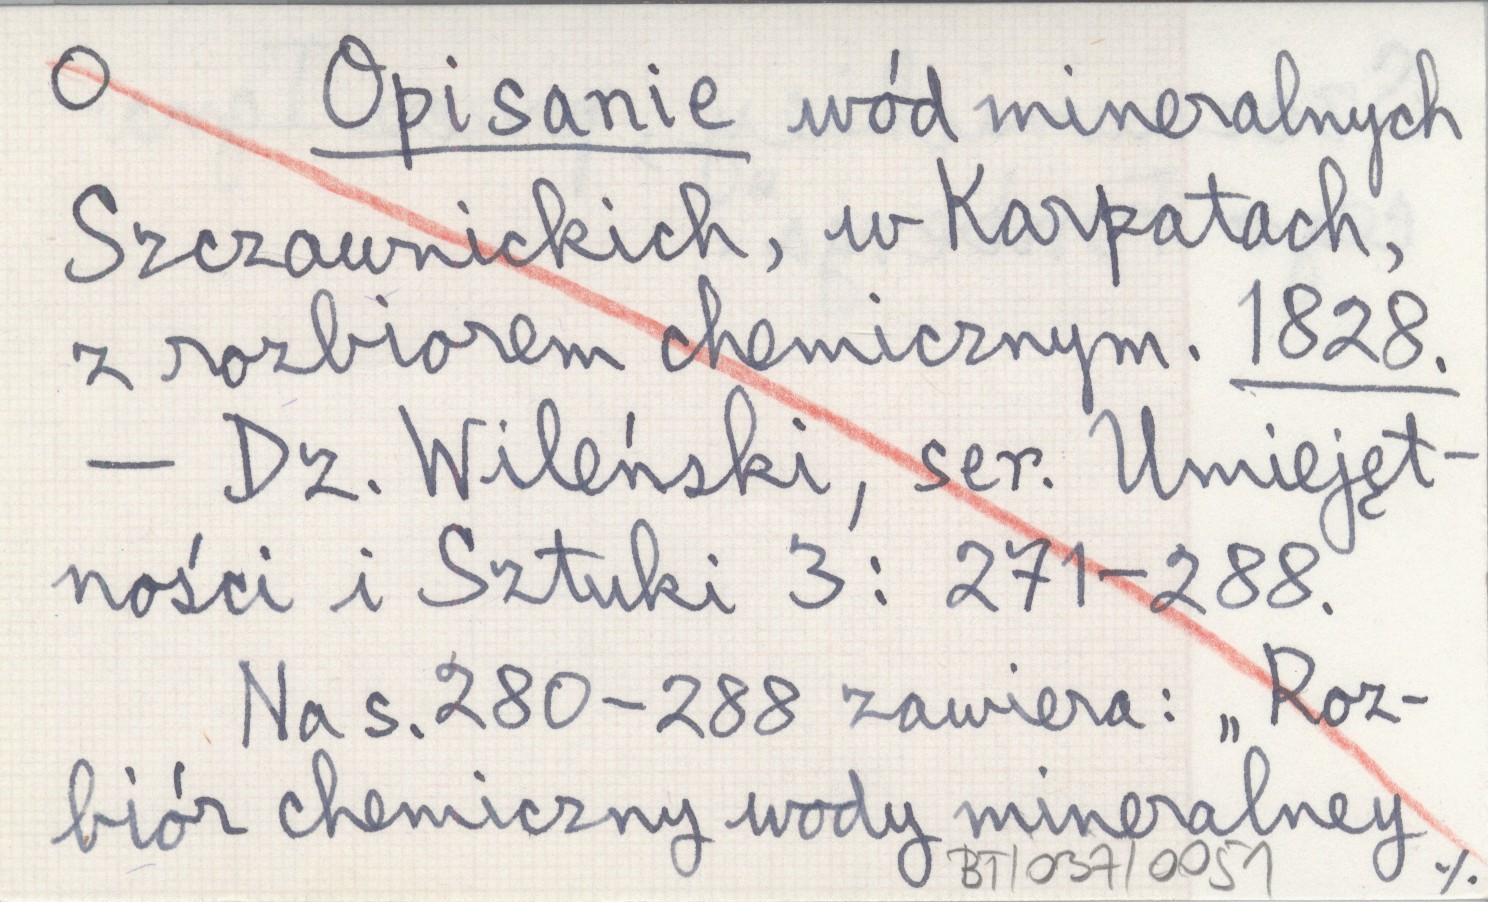 O Opisanie wód mineralnych
Szczawnickich, w Karpatach,
z rozbiorem chemicznym. 1828.
— Dz. Wileński, ser. Umiejęt-
ności i Sztuki 3: 271-288.
Na s. 280-288 zawiera: „Roz-
biór chemiczny wody mineralney
BT/037/0051 ./.